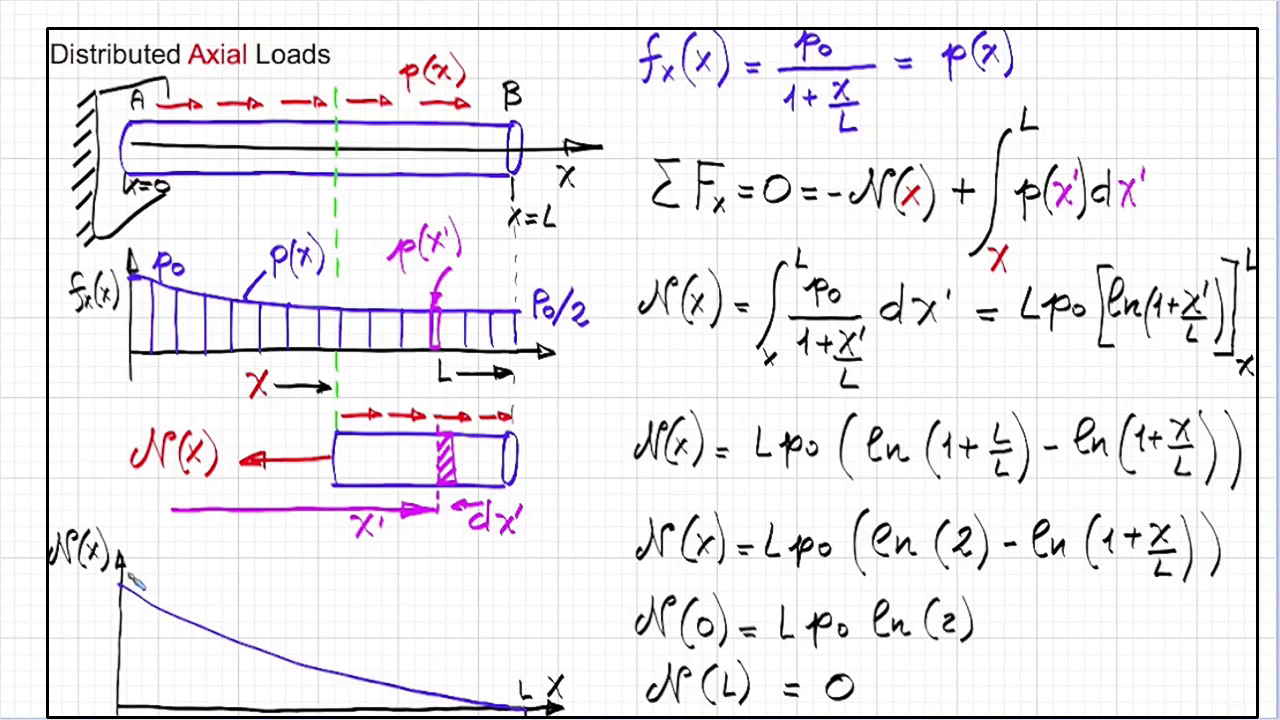 Distributed Axial Loads
p(x)
A
B
x=0
x
x=L
f_x(x)
p_0
p(x)
p(x')
p_0/2
x
L
N(x)
x'
dx'
N(x)
L
x
f_x(x) = p_0/(1+x/L) = p(x)
∑F_x = 0 = -N(x) + ∫_x^L p(x')dx'
N(x) = ∫_x^L p_0/(1+x'/L) dx' = Lp_0 [ln(1+x'/L)]_x^L
N(x) = Lp_0 (ln(1+L/L) - ln(1+x/L))
N(x) = Lp_0 (ln(2) - ln(1+x/L))
N(0) = Lp_0 ln(2)
N(L) = 0